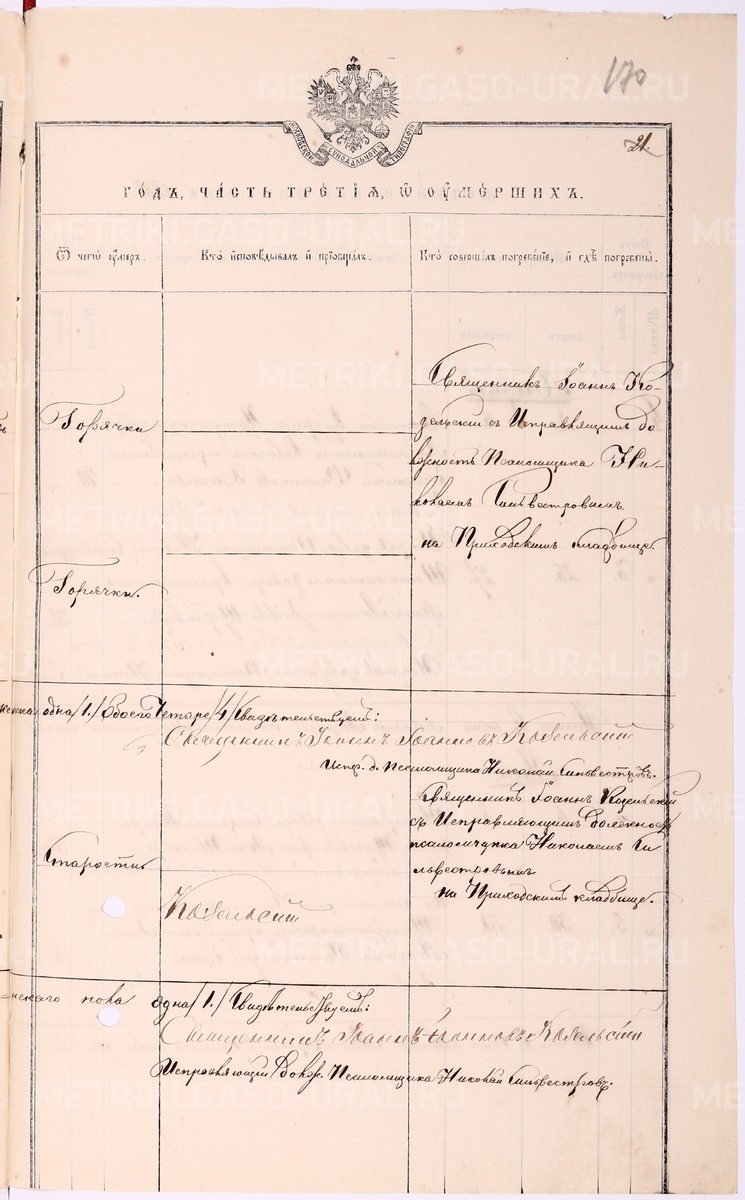 170
МОСКОВСКОЙ СѴНОДАЛЬНОЙ ТИПОГРАФІИ
21.
ГОДЪ, ЧАСТЬ ТРЕТІЯ, Ѡ ОУМЕРШИХЪ.
Ѿ чегѡ оумеръ.
Кто исповѣдывалъ и пріобщалъ.
Кто совершалъ погребеніе, и гдѣ погребены.
Горячки
Священникъ Іоаннъ Ко-
зельскій съ Исправляющимъ до
лжность Псаломщика Ни-
колаемъ Сильвестровымъ
на Приходскимъ кладбище.
Горячки.
одна /1./ Обоего Четыре /4/ Свидѣтельствуемъ:
Священникъ Іоаннъ Іоанновъ Козельскій
Испр. д. Псаломщика Николай Сильвестровъ.
Старости
Козельскій
Священникъ Іоаннъ Козельскій
съ Исправляющимъ должность
псаломщика Николаемъ Си
львестровымъ
на Приходскимъ кладбище.
нскаго пола одна /1./ Свидѣтельствуемъ:
Священникъ Іоаннъ Іоанновъ Козельскій
Исправляющій Должн. Псаломщика Николай Сильвестровъ.
METRIKI.GASO-URAL.RU